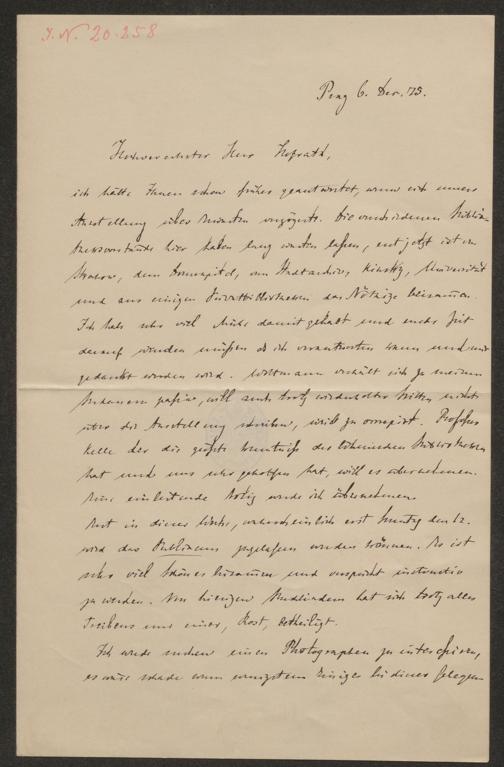 J. N. 20.258
Prag 6. Dec. 75.
Hochverehrter Herr Hofrath,
ich hätte Ihnen schon früher geantwortet, wenn sich unsere
Ausstellung über verzögerte. Die verschiedenen Biblio
hier haben lang warten lassen, erst jetzt ist von
Strahow, dem Domcapitel, vom Stadtarchiv, Kinsky, Universität
und aus einigen Privatbibliotheken das Nöthige beisammen.
Ich habe sehr viel Mühe damit gehabt und mehr Zeit
darauf wenden müssen als ich verantworten kann und mir
gedankt werden wird. Woltmann verhält sich zu meinem
passiv, will auch trotz wiederholter Bitten nichts
über die Ausstellung schreiben, weil zu occupirt. Professor
Kelle der die größte Kenntniß der böhmischen Bibliotheken
hat und uns sehr geholfen hat, will es übernehmen.
Eine einleitende Notiz werde ich übernehmen.
Erst in dieser Woche, wahrscheinlich erst Sonntag den 12.
wird das Publicum zugelassen werden können. Es ist
sehr viel Schönes beisammen und verspricht instructiv
zu werden. Von hiesigen hat sich trotz alles
Treibens nur einer, Kost, betheiligt.
Ich werde suchen einen Photographen zu interessiren,
es wäre schade wenn wenigstens Einiges bei dieser Gelegen